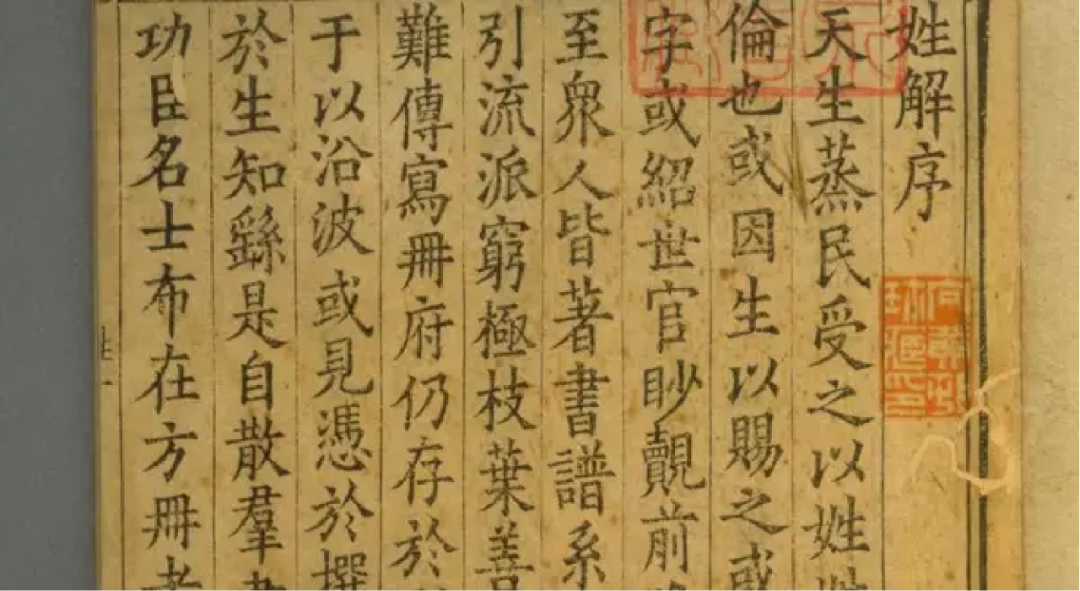 姓解序
天生蒸民受之以姓
倫也或因生以賜之或
字或紹世官眇覿前
至衆人皆著書譜系
引流派窮極枝葉善
難傳寫冊府仍存於
于以沿波或見憑於撰
於生知繇是自散羣
功臣名士布在方冊者